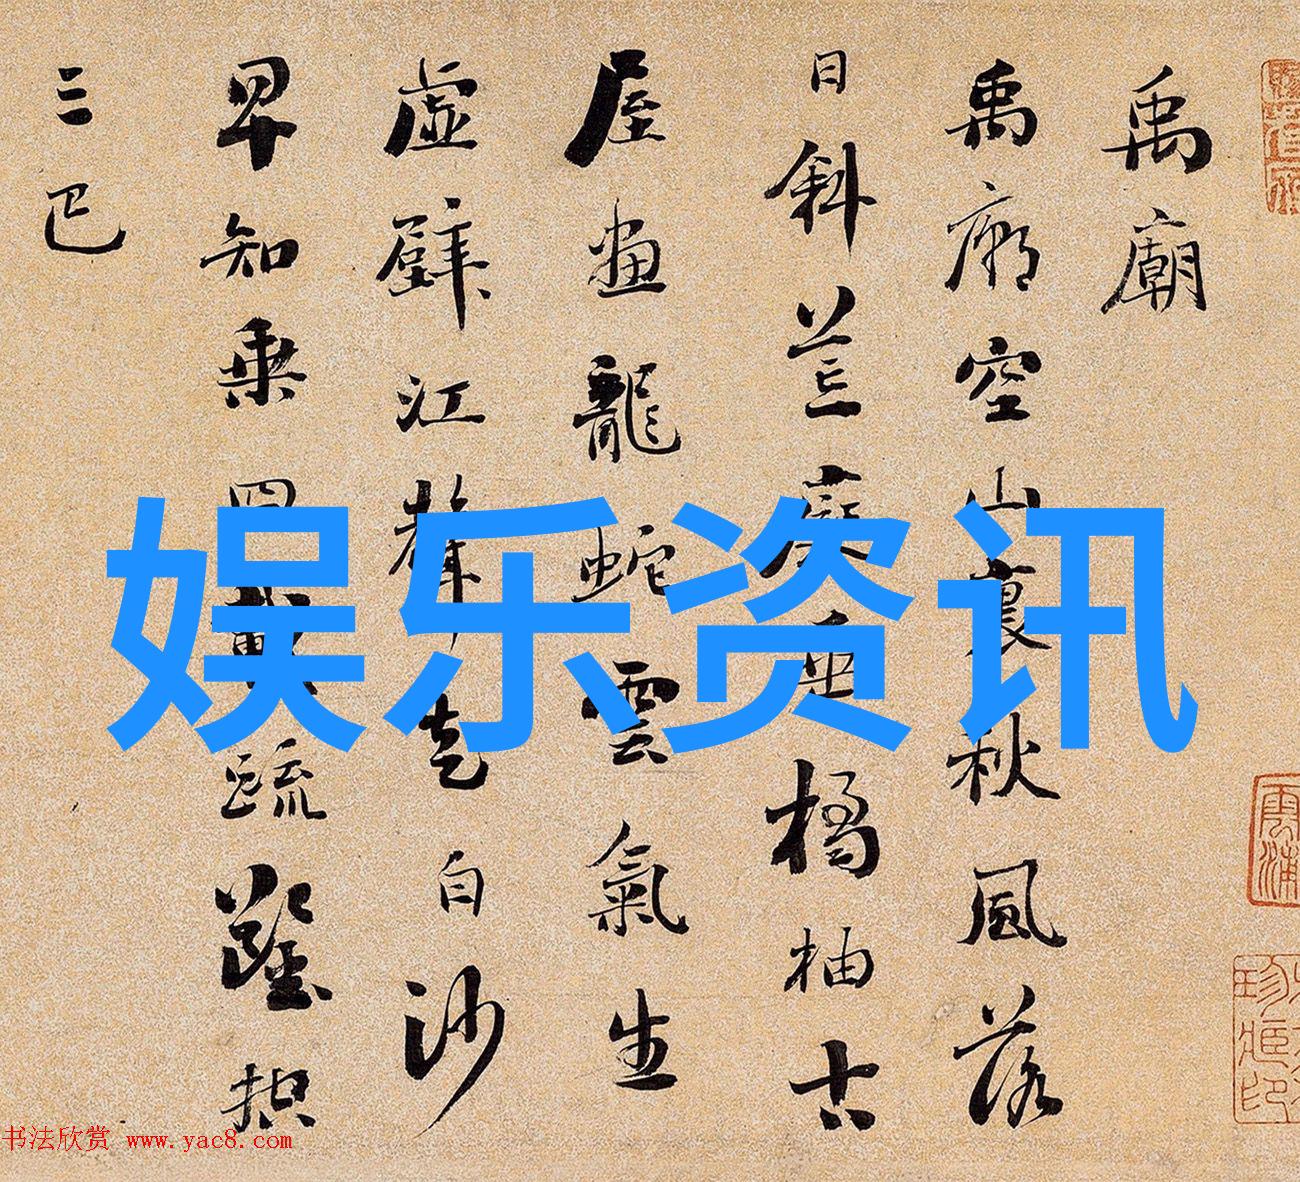 禹廟
禹廟空山裏秋風落
日斜荒庭垂橘柚古
屋畫龍蛇雲氣生
虛壁江聲走白沙
早知乘四載疏鑿控
三巴
娱乐资讯
书法欣赏 www.yac8.com